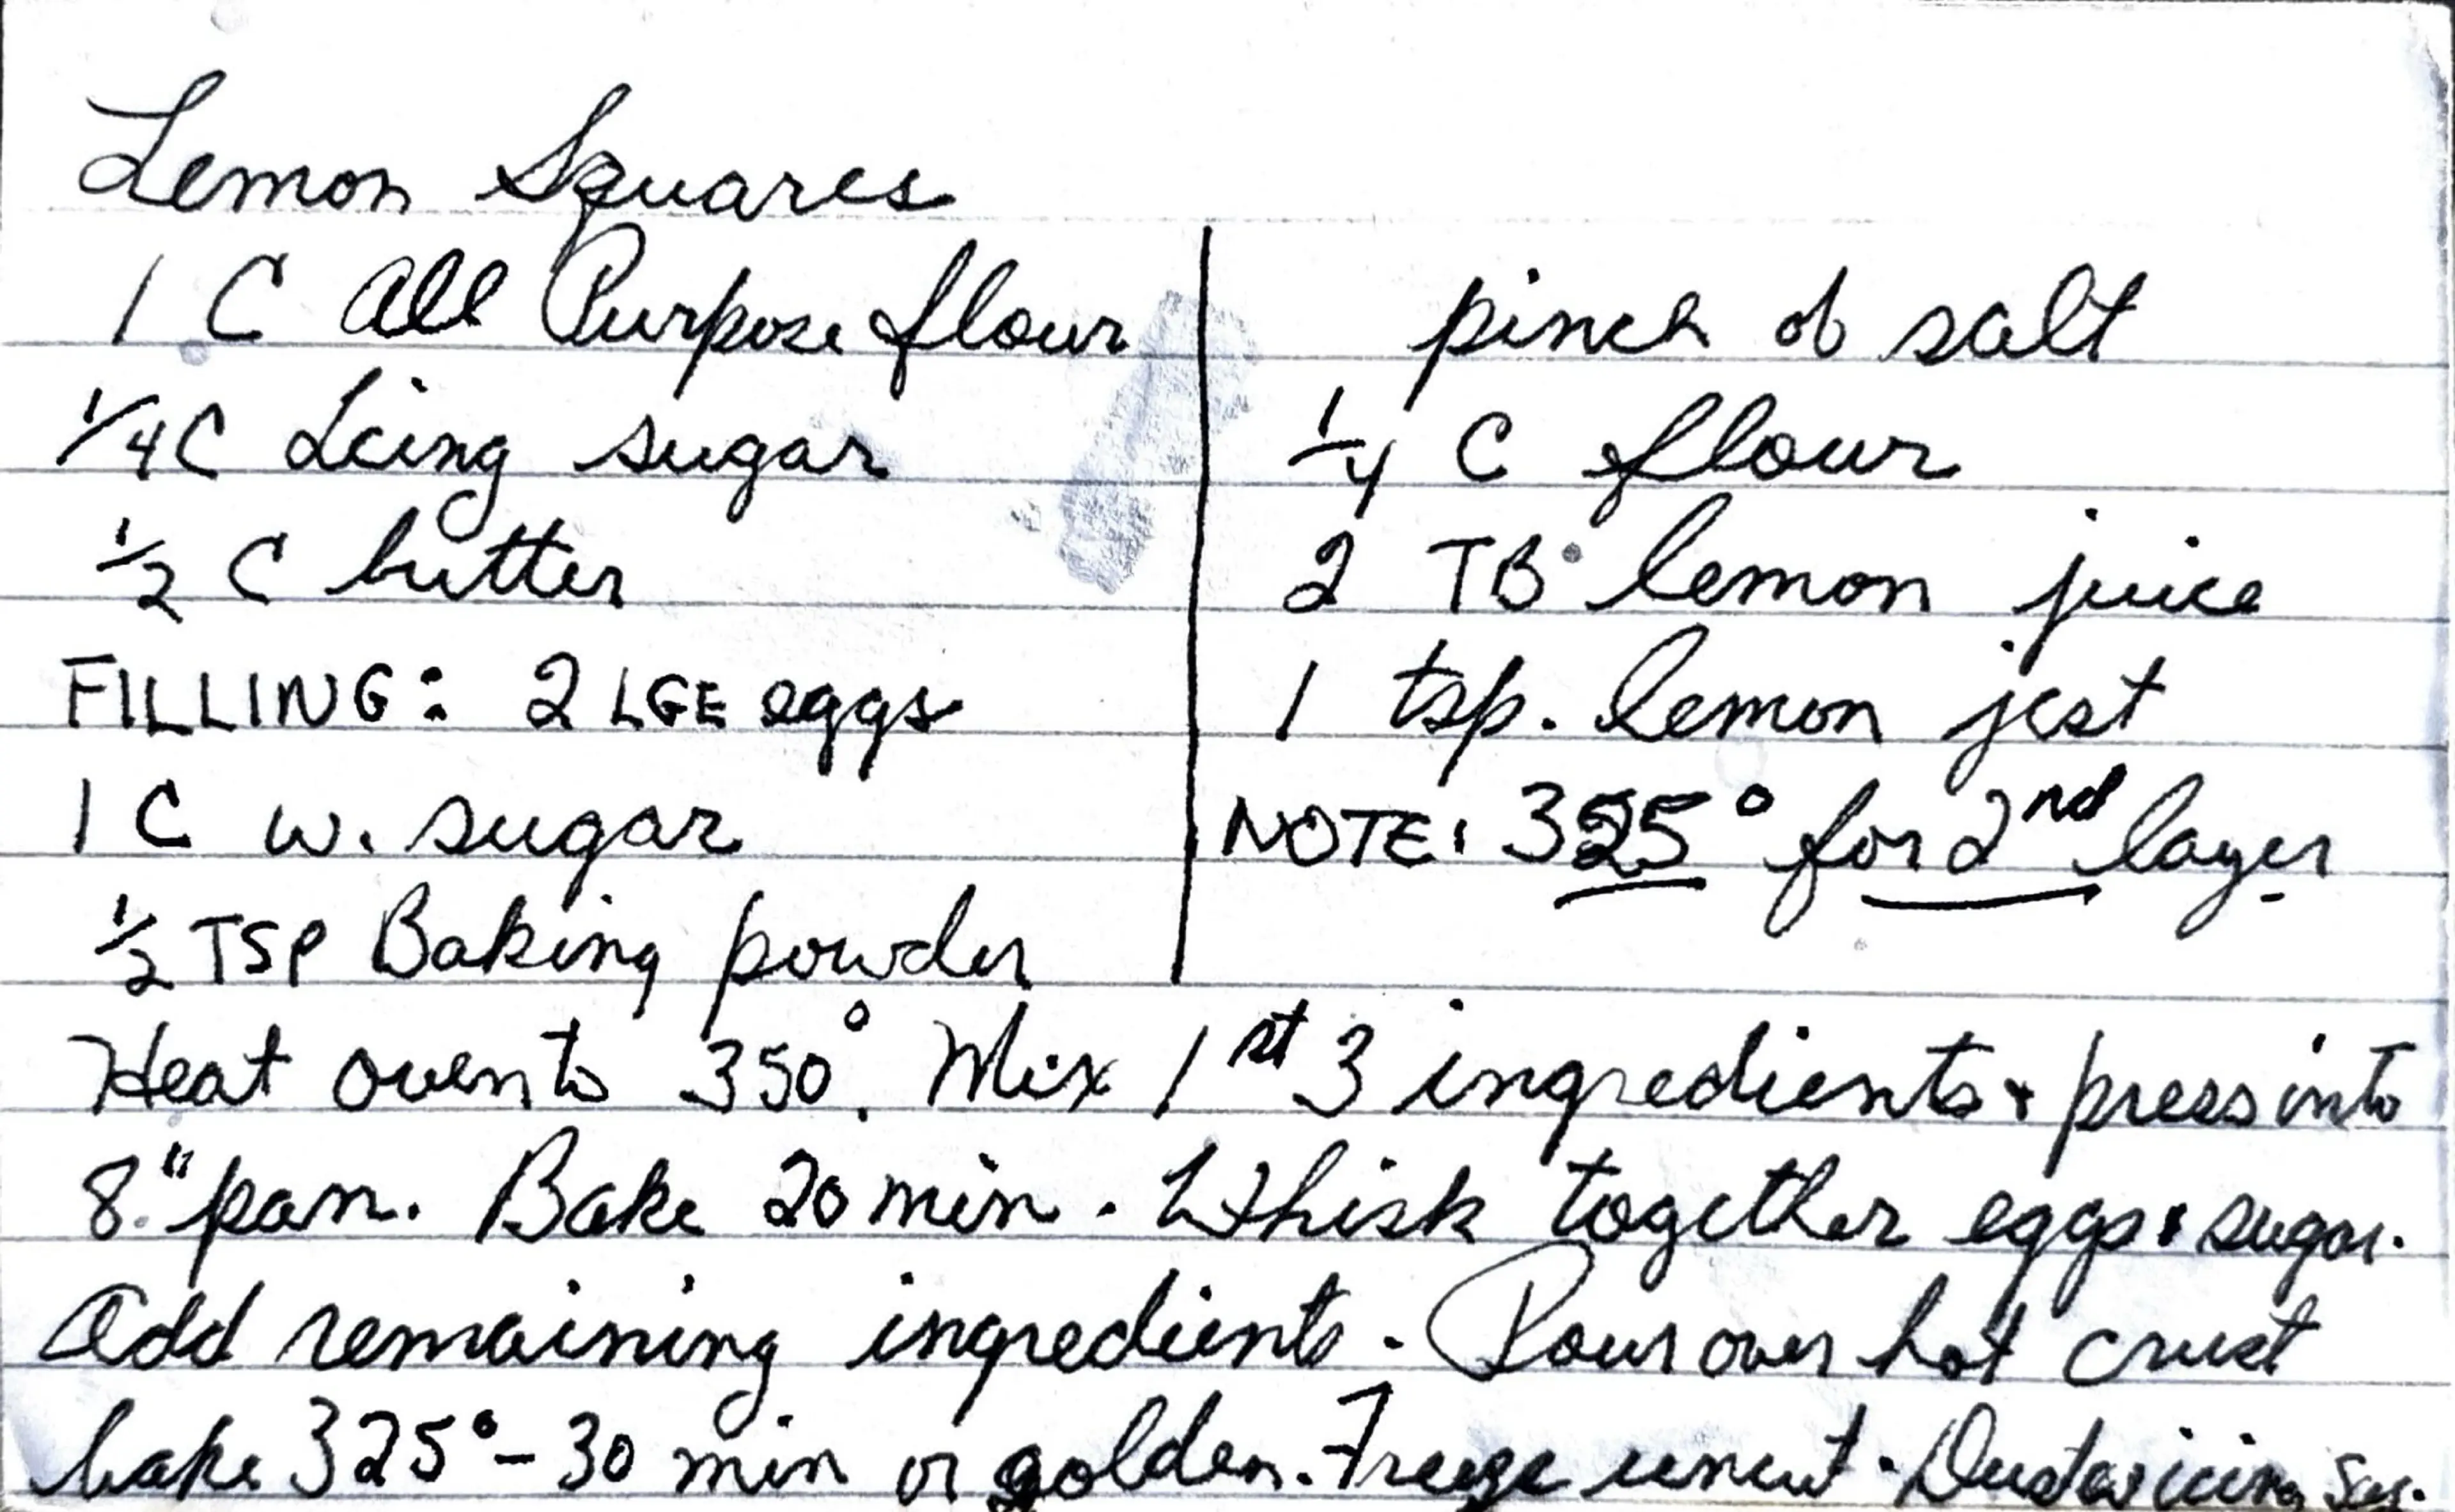 Lemon Squares
1 C All Purpose flour
1/4 C Icing sugar
1/2 C butter
FILLING: 2 LGE eggs
1 C w. sugar
1/2 TSP Baking powder
pinch of salt
1/4 C flour
2 TB lemon juice
1 tsp. lemon jest
NOTE: 325° for 2nd layer
Heat oven to 350°. Mix 1st 3 ingredients + press into
8" pan. Bake 20 min. Whisk together eggs & sugar.
Add remaining ingredients. Pour over hot crust
bake 325° - 30 min or golden. Freeze uncut. Dust icing